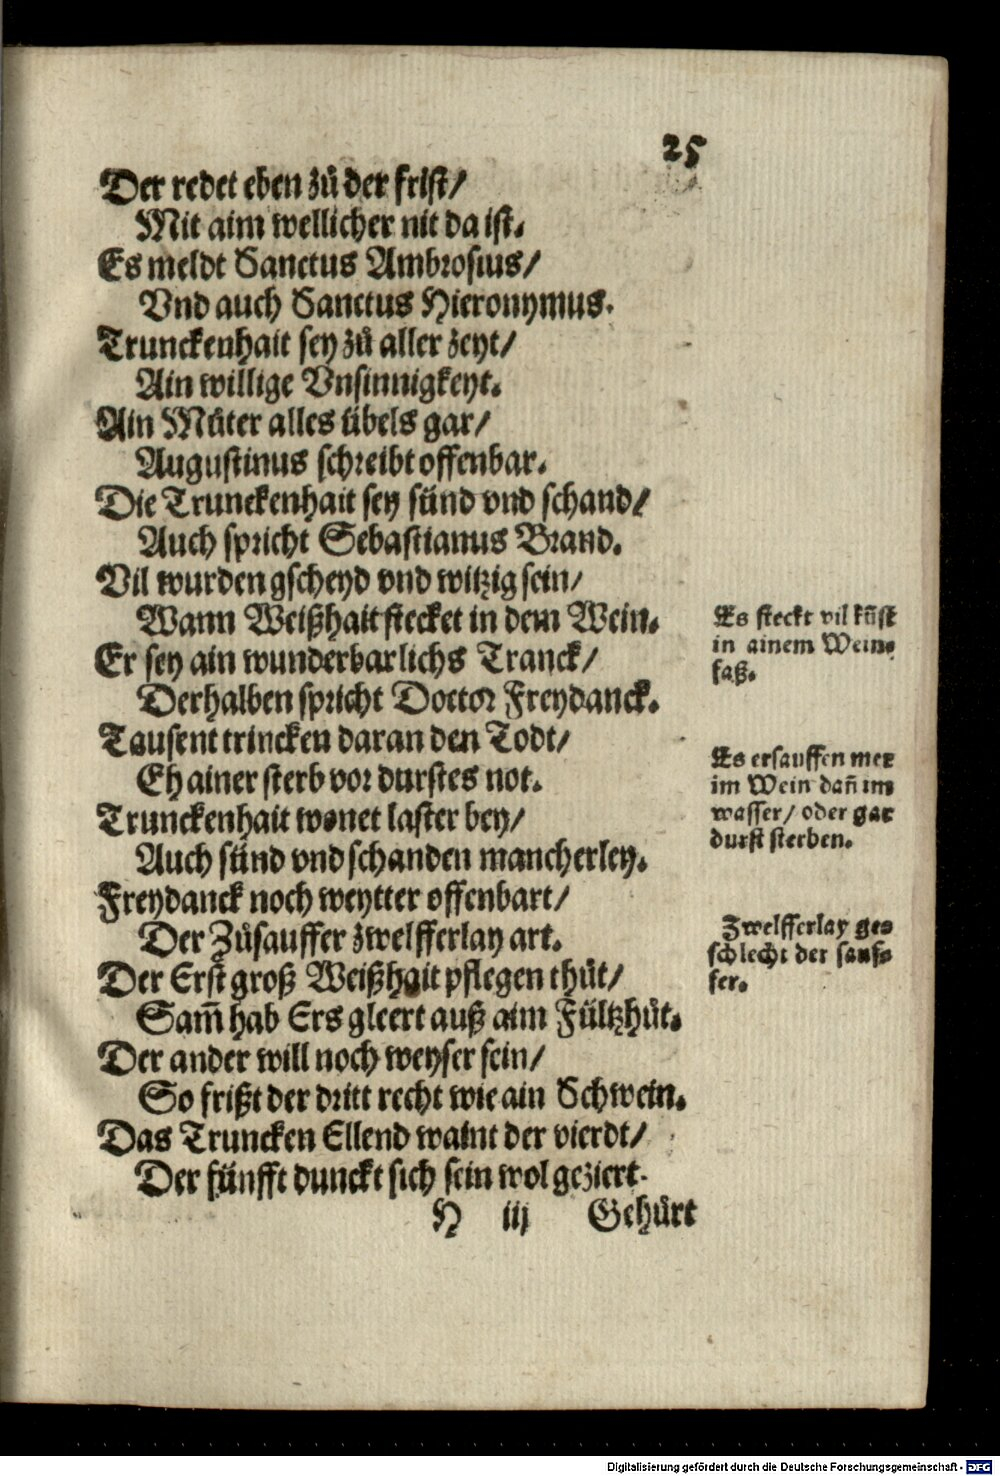 25
Der redet eben zů der frist/
Mit aim wellicher nit da ist.
Es meldt Sanctus Ambrosius/
Vnd auch Sanctus Hieronymus.
Trunckenhait sey zů aller zeyt/
Ain willige Vnsinnigkeyt.
Ain Můter alles übels gar/
Augustinus schreibt offenbar.
Die Trunckenhait sey sünd vnd schand/
Auch spricht Sebastianus Brand.
Vil wurden gscheyd vnd witzig sein/
Wann Weißhait stecket in dem Wein.
Er sey ain wunderbarlichs Tranck/
Derhalben spricht Doctor Freydanck.
Tausent trincken daran den Todt/
Eh ainer sterb vor durstes not.
Trunckenhait wonet laster bey/
Auch sünd vnd schanden mancherley.
Freydanck noch weytter offenbart/
Der Zůsauffer zwelfferlay art.
Der Erst groß Weißhait pflegen thůt/
Sam̃ hab Ers gleert auß aim Fültzhůt.
Der ander will noch weyser sein/
So frißt der dritt recht wie ain Schwein.
Das Truncken Ellend waint der vierdt/
Der fünfft dunckt sich sein wol geziert.
H iij Gehürt
Es steckt vil kũst
in ainem Wein⸗
faß.
Es ersauffen mer
im Wein dañ im
wasser/ oder gar
durst sterben.
Zwelfferlay ge⸗
schlecht der sauf⸗
fer.
Digitalisierung gefördert durch die Deutsche Forschungsgemeinschaft - DFG